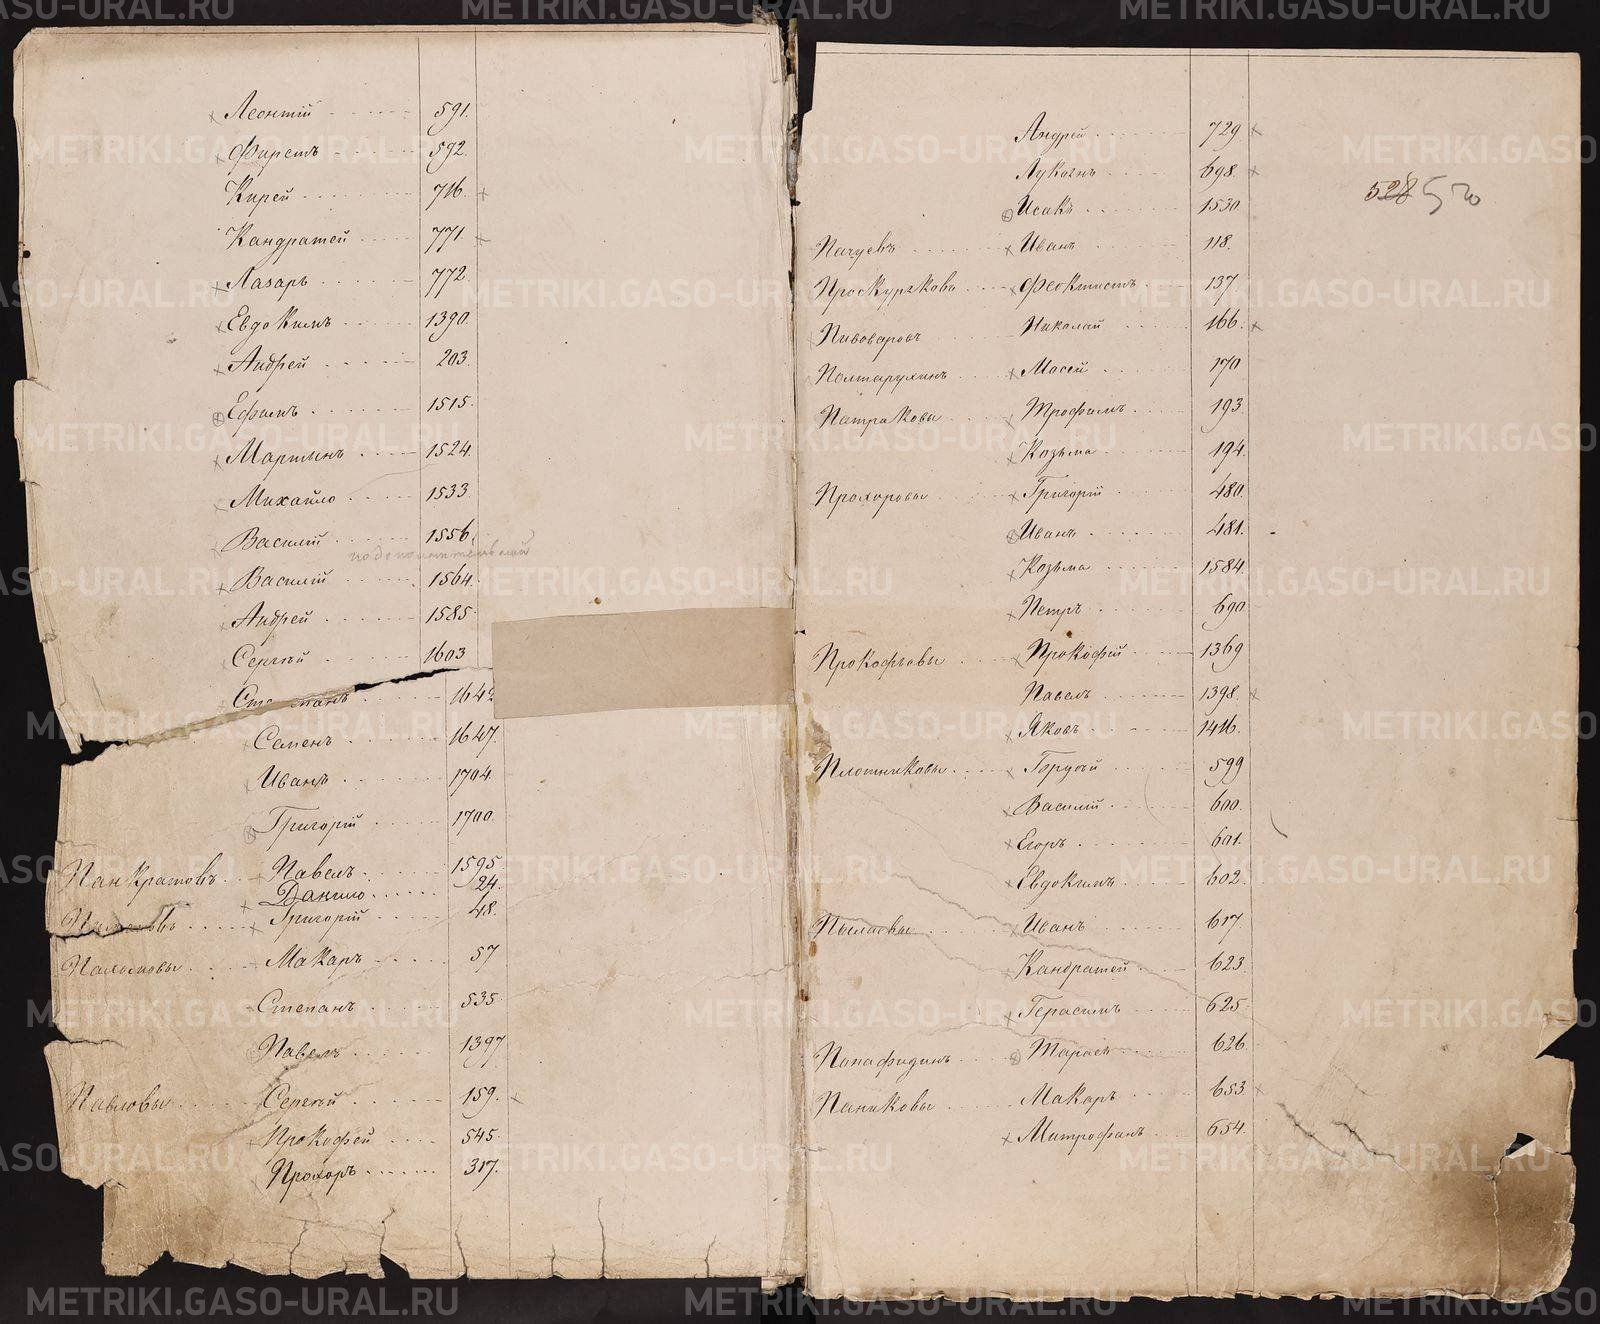 Леонтій 591.
Фирсъ 592.
Кирей 716.
Кандратей 771.
Лазарь 772.
Евдокимъ 1390.
Андрей 203.
Ефимъ 1515.
Мартынъ 1524.
Михайло 1533.
Василій 1556.
Василій 1564.
Андрей 1585.
Сергѣй 1603
1642
Семенъ 1647.
Иванъ 1704.
Григорій 1700.
Панкратовъ Павелъ 1595
Данило 24.
Григорій 48.
Макаръ 57
Степанъ 535.
Павелъ 1397
Павловы Сергѣй 159.
Прокофей 545.
Прохоръ 317.
528 520
Андрей 729
Лукоянъ 698.
Исакъ 1530
Пачуевъ Иванъ 118.
Проскуряковъ Феоктистъ 137
Пивоваровъ Николай 166.
Полтарухинъ Мосей 170
Петраковы Трофимъ 193
Козьма 194.
Прохоровы Григорій 480.
Иванъ 481.
Козьма 1584.
Петръ 690
Прокофьевы Прокофій 1369
Павелъ 1398.
Яковъ 1416.
Плотниковы Гордѣй 599
Василій 600.
Егоръ 601.
Евдокимъ 602.
Иванъ 617
Кандратей 623.
Герасимъ 625.
Понафидинъ Тарасъ 626
Паниковы Макаръ 653
Митрофанъ 654.
METRIKI.GASO-URAL.RU